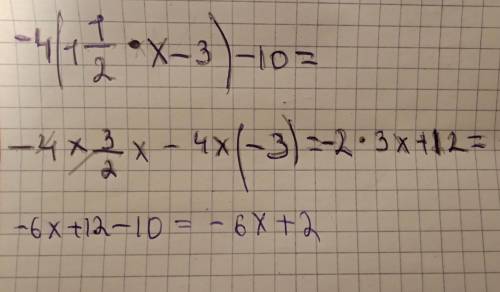 -4(1 1/2 • x - 3) - 10 =
-4 × 3/2 x - 4 × (-3) = -2 • 3x + 12 =
-6x + 12 - 10 = -6x + 2